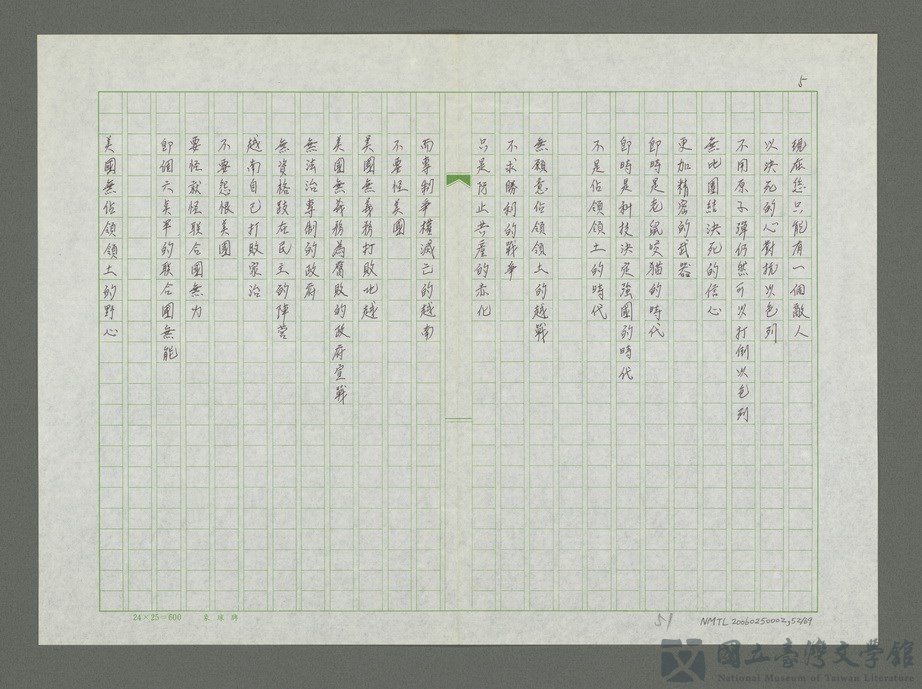 5
現在您只能有一個敵人
以決死的心對抗以色列
不用原子彈仍然可以打倒以色列
無比團結決死的信心
更加精密的武器
即時是老鼠咬貓的時代
即時是科技決定強國的時代
不是佔領領土的時代
無願意佔領領土的越戰
不求勝利的戰爭
只是防止共產的赤化
而專制爭權滅亡的越南
不要怪美國
美國無義務打敗北越
美國無義務為腐敗的政府宣戰
無法治專制的政府
無資格跤在民主的陣營
越南自己打敗家治
不要怨恨美國
要怪就怪聯合國無力
即個六矣年的聯合國無能
美國無佔領領土的野心
24×25=600
51
NMTL 20060250002, 52/69
國立臺灣文學館
National Museum of Taiwan Literature